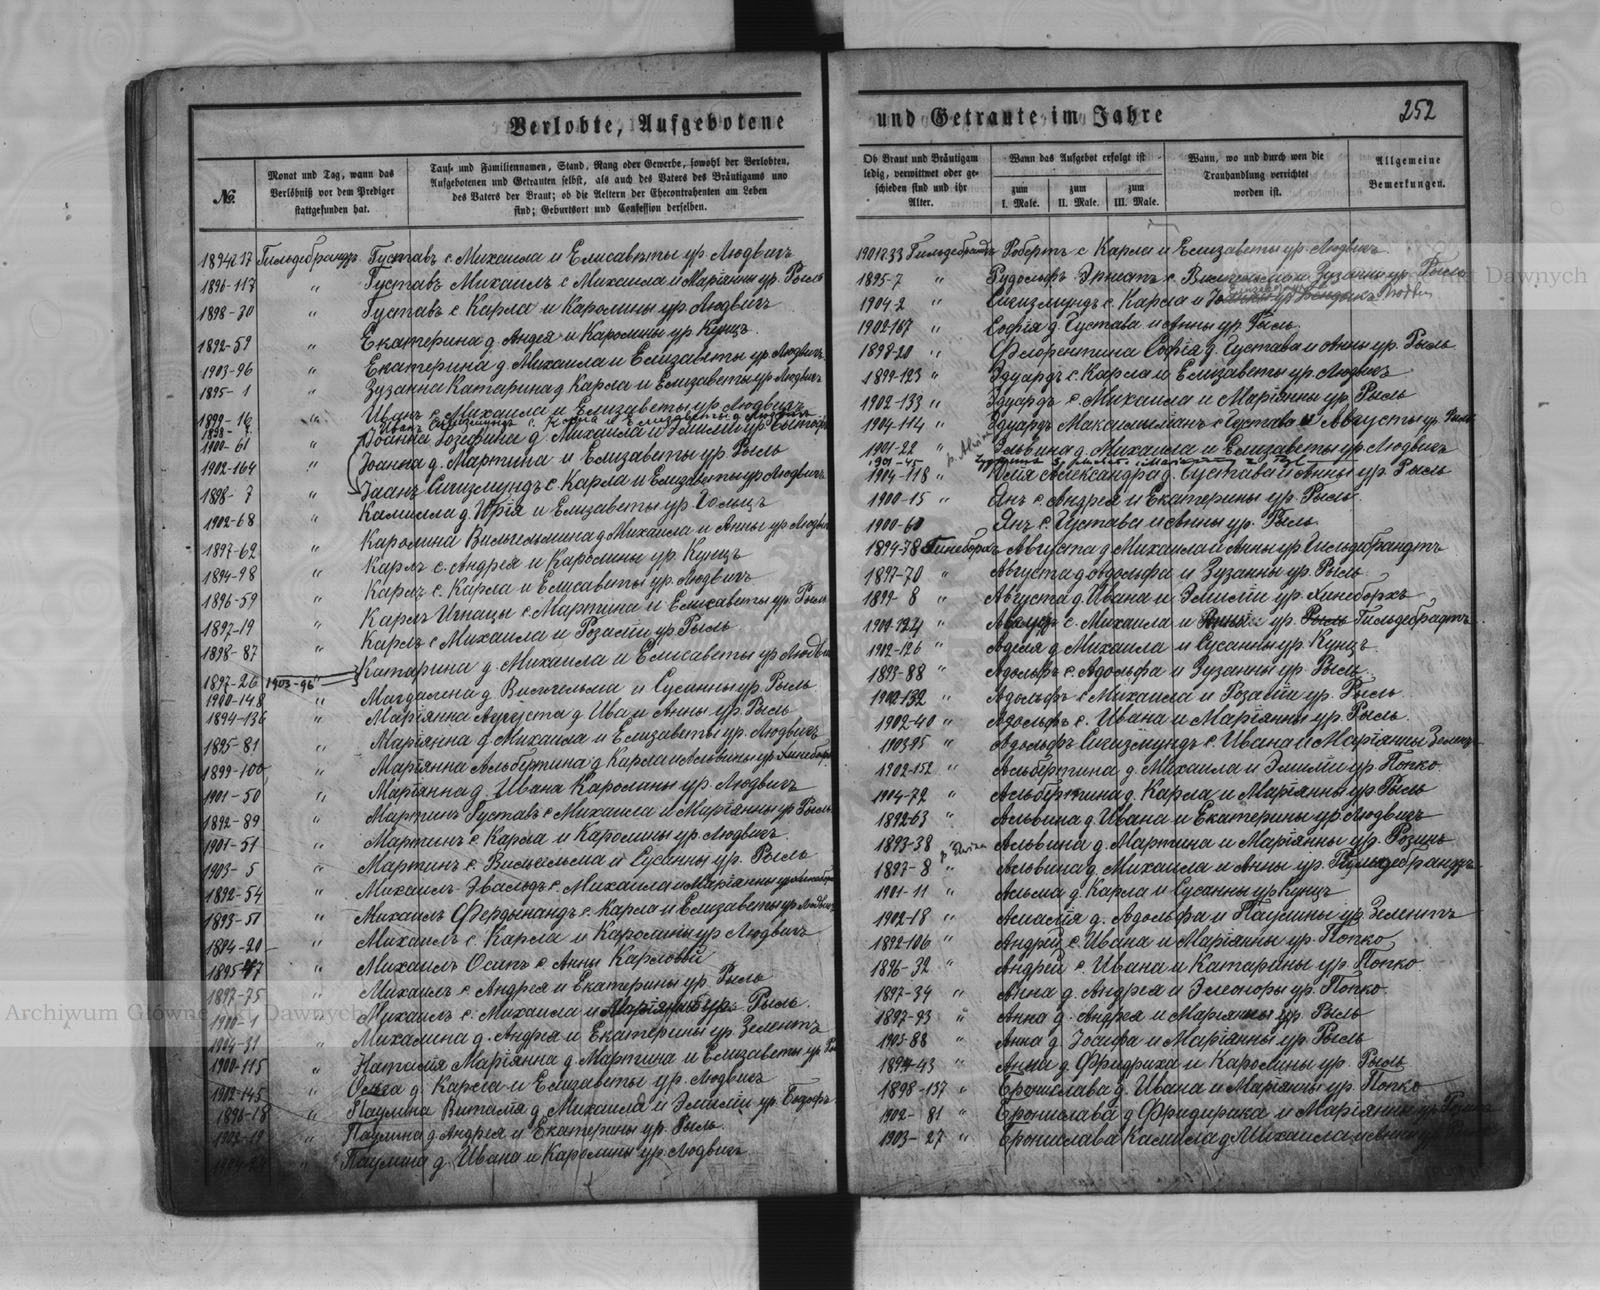 Verlobte, Aufgebotene
№
Monat und Tag, wann das
Verlöbniß vor dem Prediger
stattgefunden hat.
Tauf- und Familiennamen, Stand, Rang oder Gewerbe, sowohl der Verlobten,
Aufgebotenen und Getrauten selbst, als auch des Vaters des Bräutigams und
des Vaters der Braut; ob die Aeltern der Ehecontrahenten am Leben
sind; Geburtsort und Confession derselben.
1894-217 Гильдебрандъ Густавъ с. Михаила и Елисаветы ур. Людвигъ
1896-117 " Густавъ Михаилъ с Михаила и Маріянны ур. Рыль
1898-30 " Густавъ с Карла и Каролины ур. Людвигъ
1892-59 " Екатерина д. Андея и Каролины ур Кунцъ
1903-96 " Екатерина д. Михаила и Елизаветы ур Людвигъ
1895-1 " Зузанна Катарина д Карла и Елизаветы ур Людвигъ
1899-16 " Иванъ с Михаила и Елизаветы ур Людвигъ
1898-7 Иванъ Сигизмундъ с. Карла и Елизаветы д Людвигъ
1900-61 " Іоанна Іозефина д. Михаила и Эмиліи ур.
1902-164 " Іоанна д. Мартина и Елизаветы ур Рыль
1898-7 " Іоанъ Сигизмундъ с. Карла и Елизаветы ур Людвигъ
1902-68 " Камилла д. Юрія и Елизаветы ур. Гольцъ
1897-62 " Каролина Вильгельмина д Михаила и Анны ур Людвигъ
1894-98 " Карлъ с. Андрея и Каролины ур. Кунцъ
1896-59 " Карлъ с. Карла и Елисаветы ур. Людвигъ
1897-19 " Карлъ Игнацы с Мартина и Елисаветы ур. Рыль
1898-87 " Карлъ с Михаила и Розаліи ур Рыль
1897-26 1903-96 " Катарина д. Михаила и Елисаветы ур Людвигъ
1900-148 " Магдалена д Вильгельма и Сусанны ур. Рыль
1894-136 " Маріянна Августа д Ива и Анны ур. Рыль
1895-81 " Маріянна д Михаила и Елизаветы ур. Людвигъ
1899-100 " Маріянна Альбертина д Карла и Альвины ур Хинеборхъ
1901-50 " Маріанна д. Ивана Каролины ур. Людвигъ
1892-89 " Мартинъ Густавъ с Михаила и Маріянны ур Рыль
1901-51 " Мартинъ с Карла и Каролины ур. Людвигъ
1903-5 " Мартинъ с. Вильгельма и Сусанны ур. Рыль
1892-54 " Михаилъ-Эвальдъ с. Михаила и Маріянны ур
1893-51 " Михаилъ Фердынандъ с. Карла и Елизаветы ур Людвигъ
1894-20 " Михаилъ с. Карла и Каролины ур Людвигъ
1895-47 " Михаилъ Осипъ с. Анны Карловой
1897-75 " Михаилъ с Андрея и Екатерины ур. Рыль
1900-1 " Михаилъ с. Михаила и Маріянны ур. Рыль
1904-31 " Михалина д. Андрея и Екатерины ур. Зелентъ
1900-115 " Наталія Маріянна д. Мартина и Елизаветы ур.
1902-145 " Ольга д. Карла и Елизаветы ур. Людвигъ
1896-18 " Паулина Виталія д. Михаила и Эмиліи ур.
1903-19 " Паулина д Андрея и Екатерины ур. Рыль
" Паулина д. Ивана и Каролины ур. Людвигъ
und Getraute im Jahre
252
Ob Braut und Bräutigam
ledig, verwittwet oder ge-
schieden sind und ihr
Alter.
Wann das Aufgebot erfolgt ist
zum
I. Male.
zum
II. Male.
zum
III. Male.
Wann, wo und durch wen die
Trauhandlung verrichtet
worden ist.
Allgemeine
Bemerkungen.
1901-233 Гильдебрандъ Робертъ с Карла и Елизаветы ур. Людвигъ
1895-7 " Рудольфъ Эрнстъ с. и Зузанны ур. Рыль
1904-2 " Сигизмундъ с. Карла и
1902-167 " Софія д. Густава и Анны ур. Рыль
1898-20 " Флорентина Софія д. Густава и Анны ур. Рыль
1899-123 " Эдуардъ с. Карла и Елизаветы ур. Людвигъ
1902-133 " Эдуардъ с. Михаила и Маріянны ур. Рыль
1904-114 " Эдуардъ Максимиліанъ с Густава и Августы ур Рыль
1901-22 " Эльвина д. Михаила и Елизаветы ур Людвигъ
1901-45
1904-118 " Юлія Александра д. Густава и Анны ур. Рыль
1900-15 " Янъ с Андрея и Екатерины ур. Рыль
1900-60 Янъ с. Густава и Анны ур. Рыль
1894-78 Гинеборхъ Августа д Михаила и Анны ур Гильдебрандтъ
1897-70 " Августа д Адольфа и Зузанны ур. Рыль
1899-8 " Августа д. Ивана и Эмиліи ур. Хинеборхъ
1901-124 " с. Михаила и ур. Рыль Гильдебрадтъ
1902-126 " Аделя д. Михаила и Сусанны ур. Кунцъ
1893-88 " Адольфъ с. Адольфа и Зузанны ур. Рыль
1902-132 " Адольфъ с Михаила и Розаліи ур. Рыль
1902-40 " Адольфъ с. Ивана и Маріянны ур. Рыль
1903-95 " Адольфъ Сигизмундъ с. Ивана и Маріянны Зелентъ
1902-152 " Альбертина д. Михаила и Эмиліи ур. Попко
1904-72 " Альбертина д. Карла и Маріянны ур. Рыль
1892-63 " Альвина д. Ивана и Екатерины ур Людвигъ
1893-38 " Альвина д. Мартина и Маріянны ур. Розинъ
1897-8 " Альвина д. Михаила и Анны ур. Гильдебрандъ
1901-11 " Альма д. Карла и Сусанны ур Кунцъ
1902-18 " Амалія д. Адольфа и Паулины ур Зелентъ
1892-106 " Андрей с. Ивана и Маріянны ур. Попко
1896-32 " Андрей с. Ивана и Катарины ур. Попко
1897-34 " Анна д. Андрея и Элеоноры ур. Попко
1897-93 " Анна д. Андрея и Маріянны ур. Рыль
1903-88 " Анна д. Іосифа и Маріянны ур. Рыль
1894-43 " Анна д Фридриха и Каролины ур. Рыль
1898-137 " Бронислава д. Ивана и Маріянны ур. Попко
1902-81 " Бронислава д Фридирика и Маріянны ур
1903-27 " Бронислава Камилла д Михаила и Анны ур.
Archiwum Główne Akt Dawnych